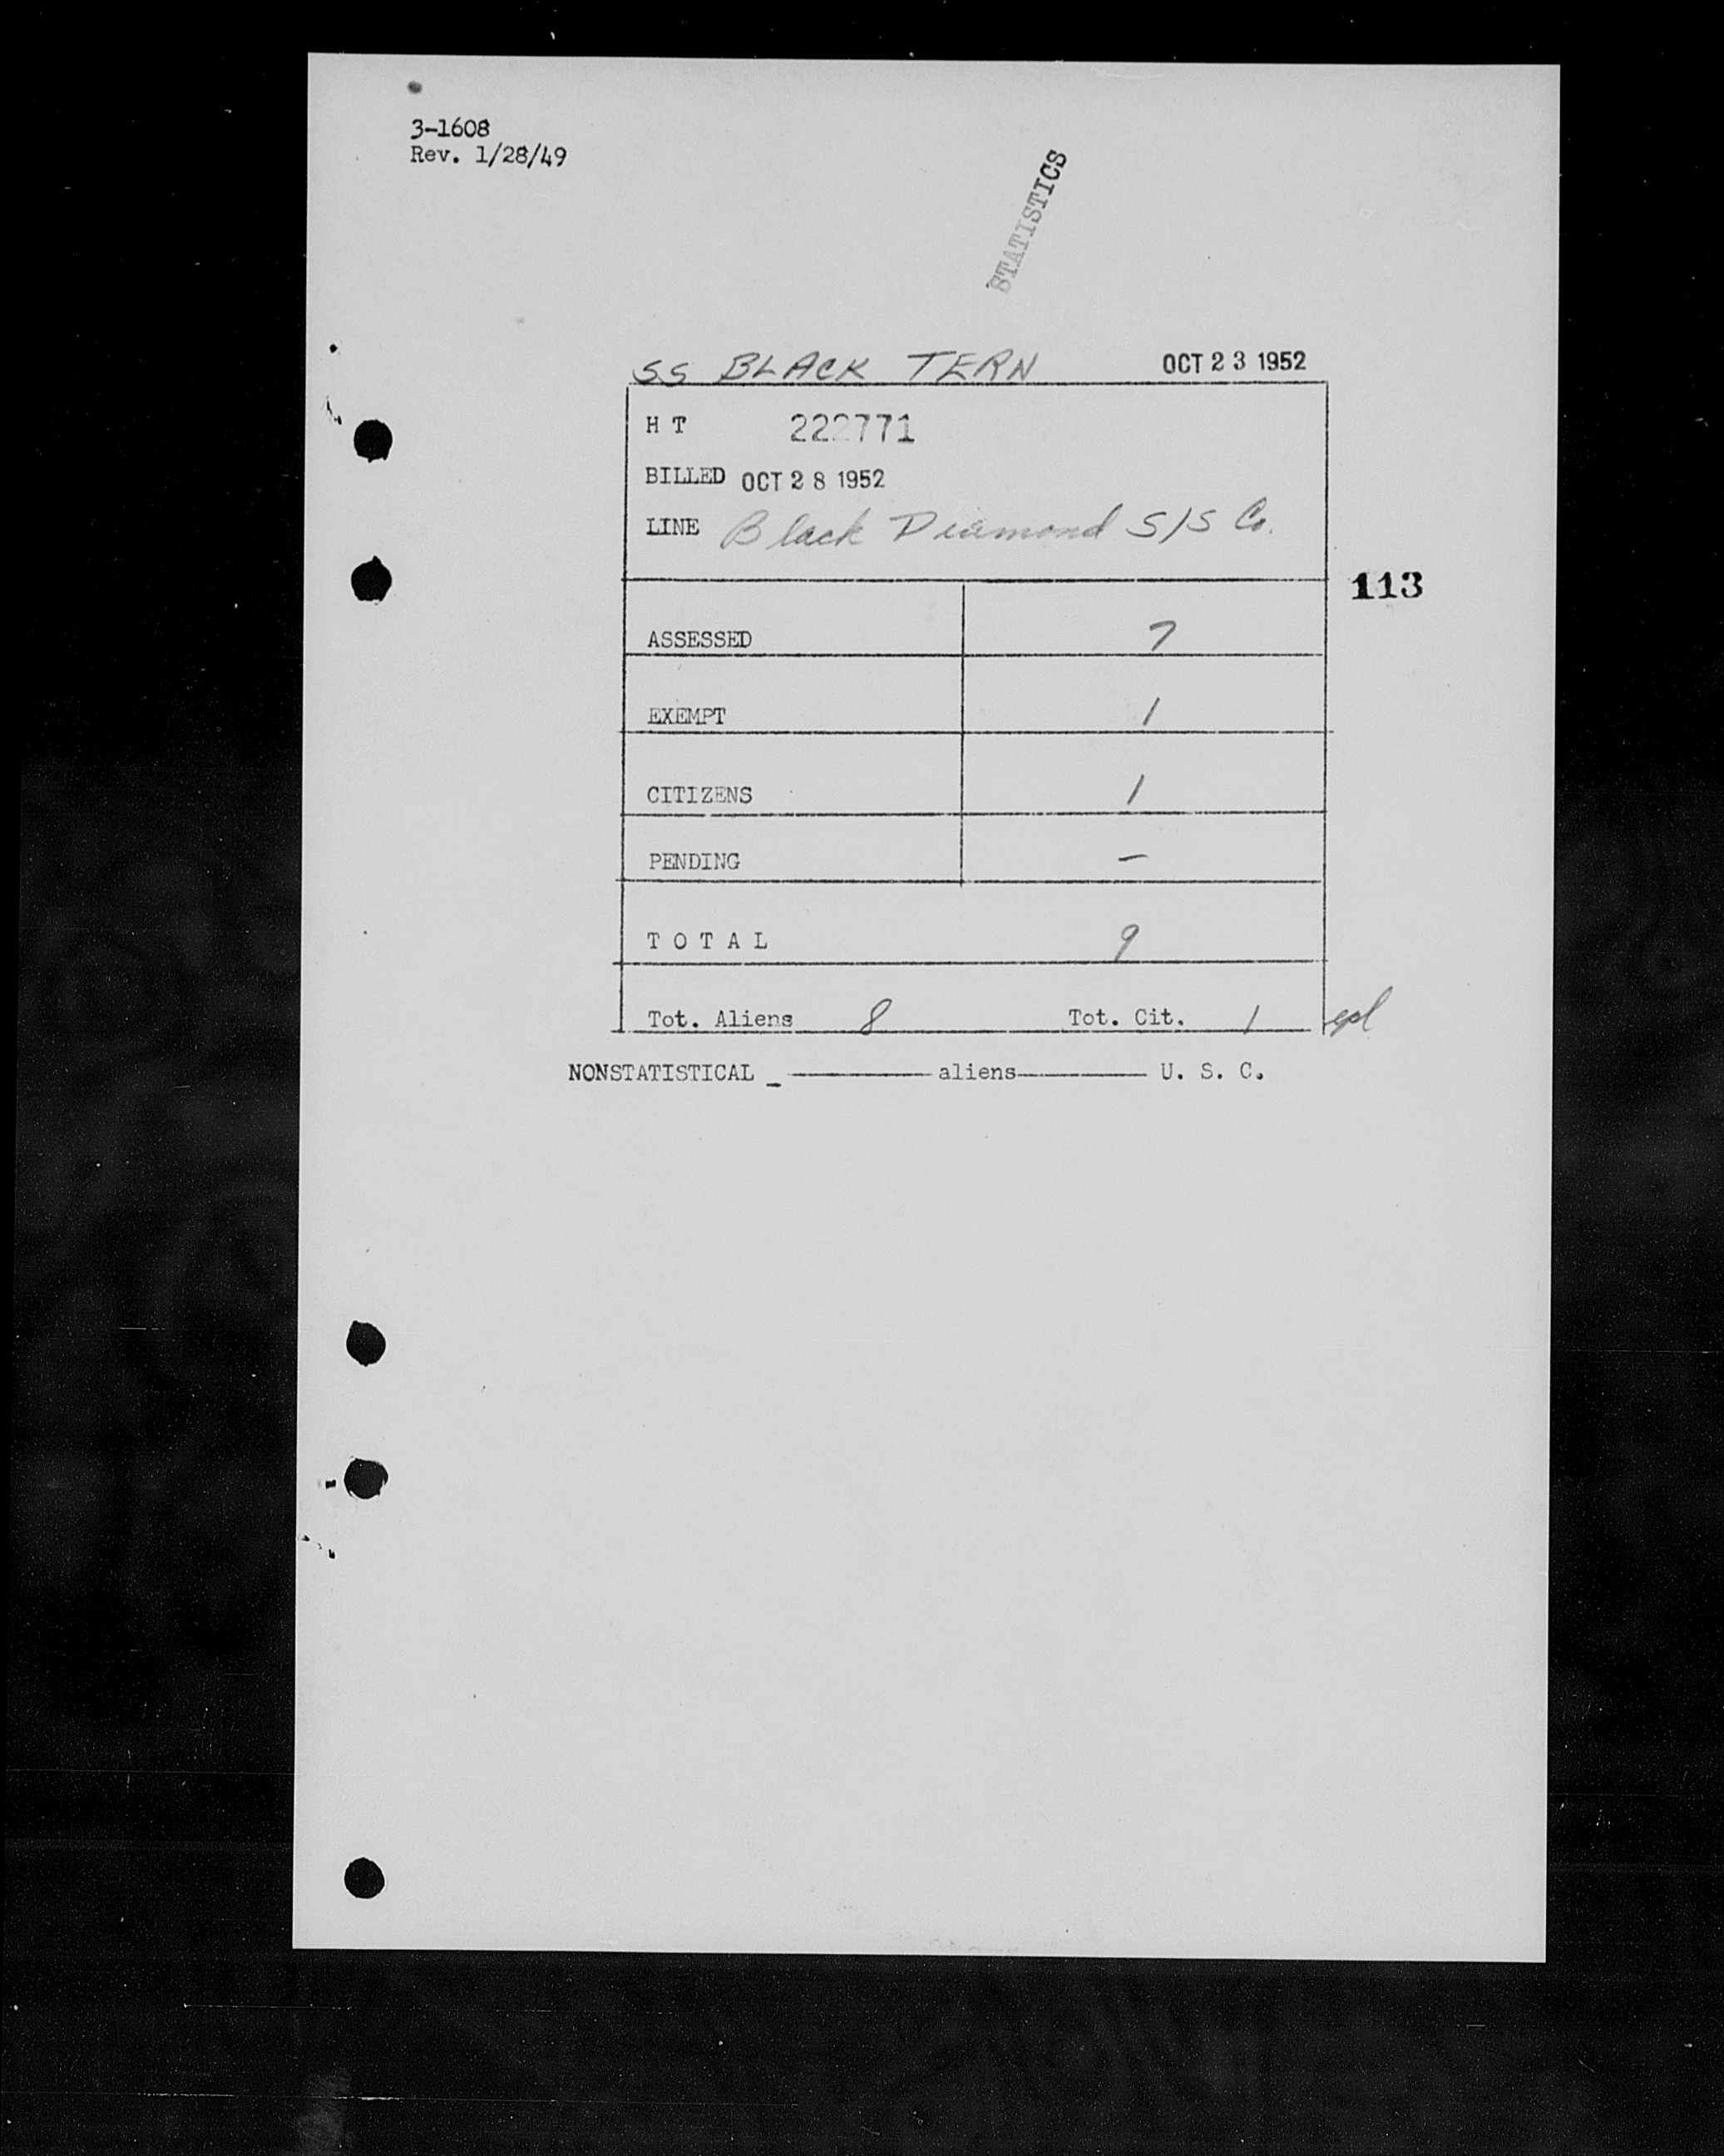 3-1608
Rev. 1/28/49
STATISTICS
SS BLACK TERN OCT 23 1952
H T 222771
BILLED OCT 28 1952
LINE Black Diamond S/S Co.
113
ASSESSED 7
EXEMPT 1
CITIZENS 1
PENDING -
T O T A L 9
Tot. Aliens 8 Tot. Cit. 1
NONSTATISTICAL _ aliens U. S. C.